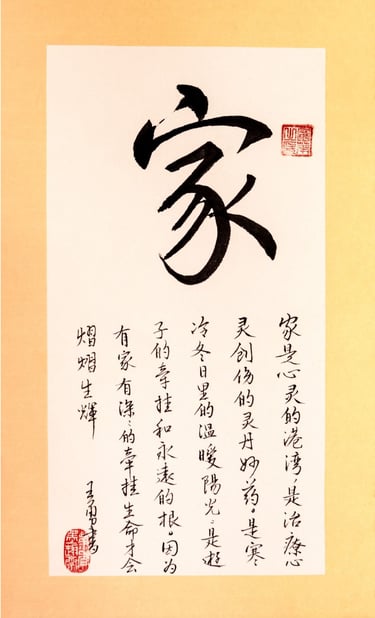 家
家是心灵的港湾,是治療心
灵创伤的灵丹妙药。是寒
冷冬日里的温暖陽光。是遊
子的牵挂和永遠的根。因为
有家有深〻的牽挂生命才会
熠熠生輝
王勇書